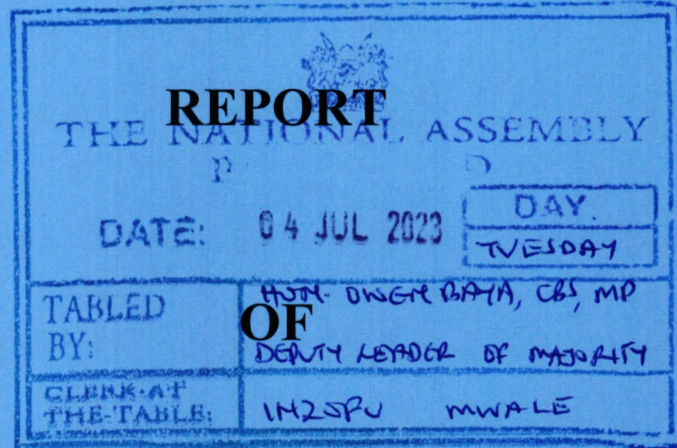 REPORT
THE NATIONAL ASSEMBLY
P D
DATE: 04 JUL 2023
DAY.
TUESDAY
TABLED BY:
HON. OWEN BAYA, CBS, MP
OF
DEPUTY LEADER OF MAJORITY
CLERK-AT
THE-TABLE:
INZOFU MWALE